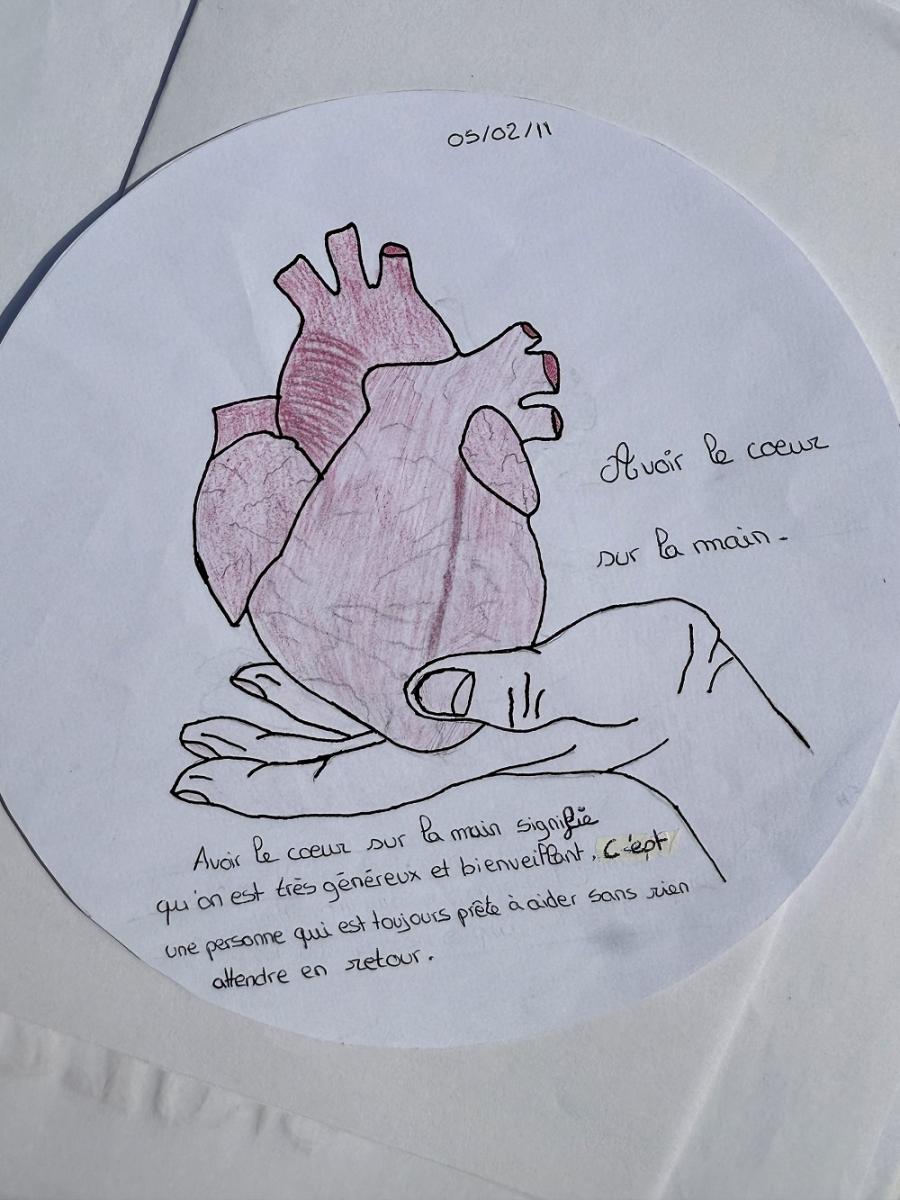 05/02/11
Avoir le coeur
sur la main.
Avoir le coeur sur la main signifie
qu'on est très généreux et bienveillant. C'est
une personne qui est toujours prête à aider sans rien
attendre en retour.